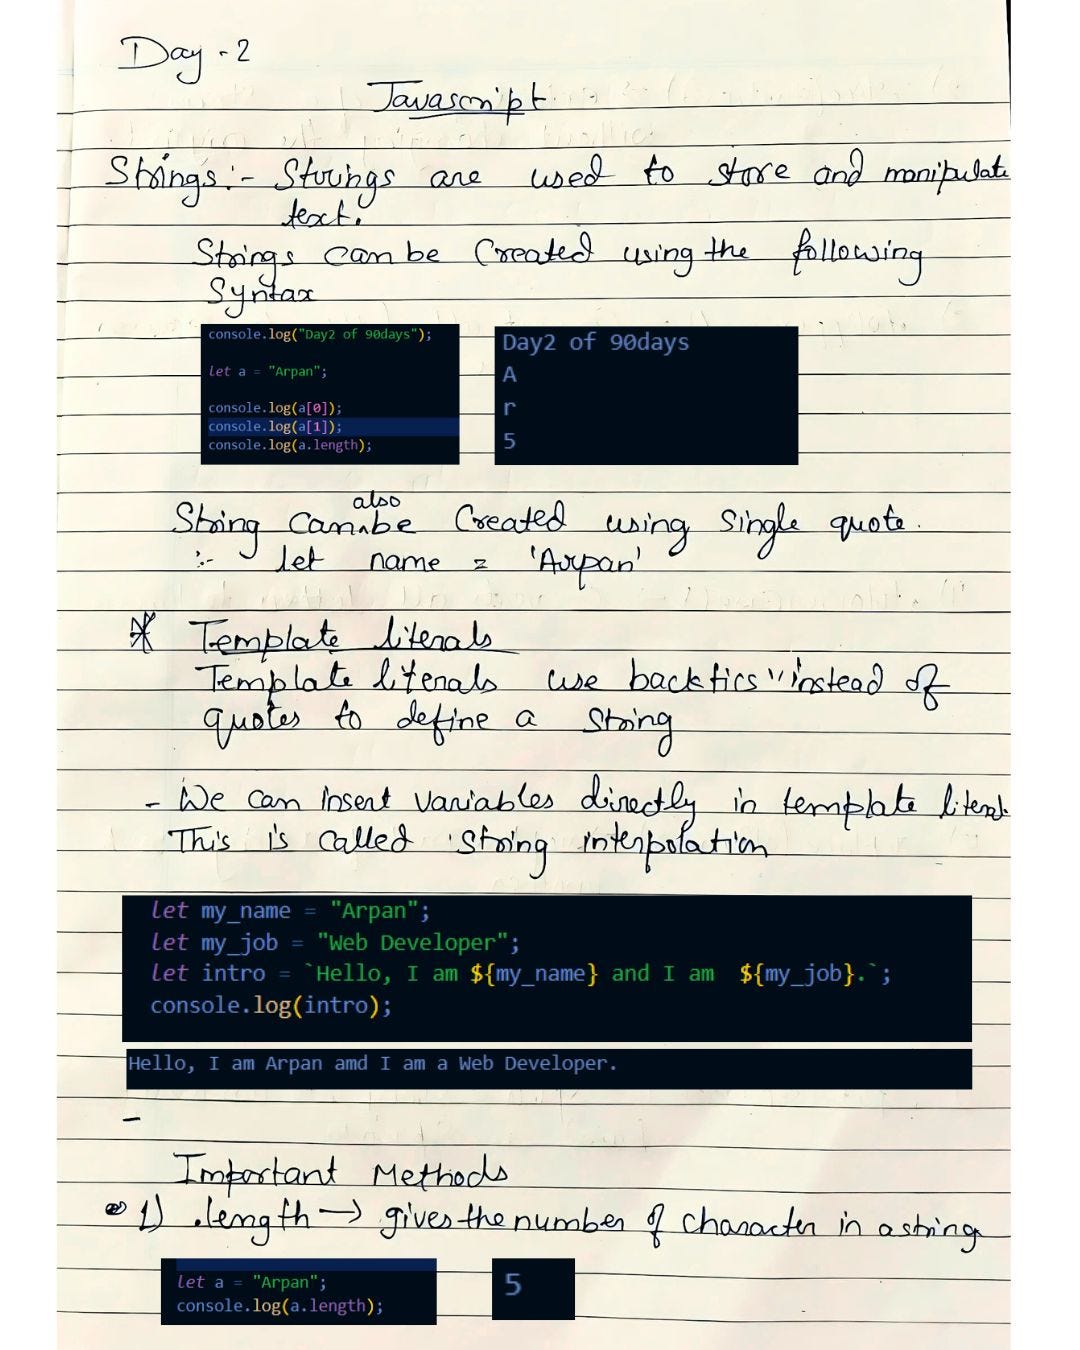 Day - 2
Javascript
Strings :- Strings are used to store and manipulate
text.
Strings can be Created using the following
Syntax
console.log("Day2 of 90days");
let a = "Arpan";
console.log(a[0]);
console.log(a[1]);
console.log(a.length);
Day2 of 90days
A
r
5
also
String Can be Created using Single quote.
:- let name = 'Arpan'
* Template literals
Template literals use backtics `` instead of
quotes to define a String
- We Can insert variables directly in template literal.
This is called string interpolation
let my_name = "Arpan";
let my_job = "Web Developer";
let intro = `Hello, I am ${my_name} and I am  ${my_job}.`;
console.log(intro);
Hello, I am Arpan amd I am a Web Developer.
-
Important Methods
1) .length → gives the number of character in a string
let a = "Arpan";
console.log(a.length);
5